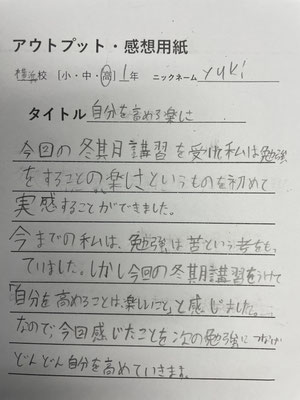 アウトプット・感想用紙
横浜校 (小・中・高) 1年 ニックネーム yuki
タイトル 自分を高める楽しさ
今回の冬期講習を受け私は勉強
をすることの"楽しさというものを初めて
実感することができました。
今までの私は、勉強は苦という考をも
ていました。しかし今回の冬期講習をうけて
「自分を高めることは、楽しいこと」と感じました。
なので、今回感じたことを次の勉強につなげ
どんどん自分を高めていきます。